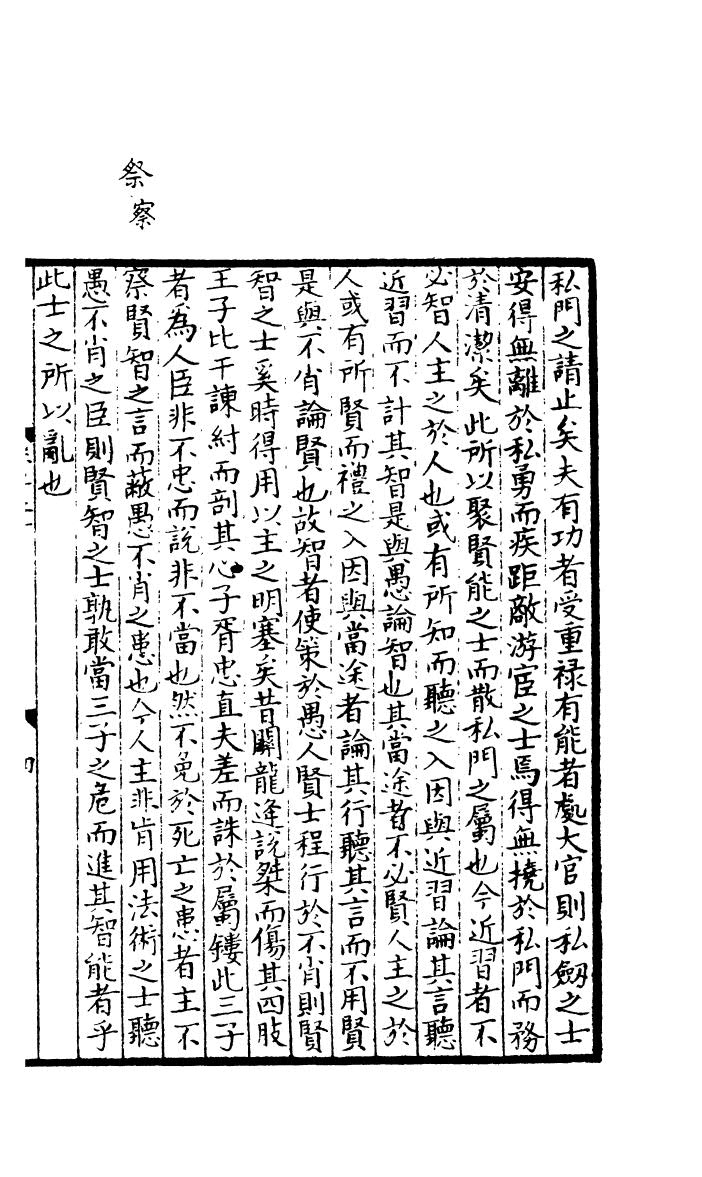 私門之請止矣夫有功者受重禄有能者處大官則私劒之士
安得無離於私勇而疾距敵游宦之士焉得無撓於私門而務
於清潔矣此所以聚賢能之士而散私門之屬也今近習者不
必智人主之於人也或有所知而聽之入因與近習論其言聽
近習而不計其智是與愚論智也其當途者不必賢人主之於
人或有所賢而禮之入因與當途者論其行聽其言而不用賢
是與不肖論賢也故智者使策於愚人賢士程行於不肖則賢
智之士奚時得用以主之明塞矣昔關龍逄說桀而傷其四肢
王子比干諫紂而剖其心子胥忠直夫差而誅於屬鏤此三子
者爲人臣非不忠而說非不當也然不免於死亡之患者主不
察賢智之言而蔽愚不肖之患也今人主非肯用法術之士聽
愚不肖之臣則賢智之士孰敢當三子之危而進其智能者乎
此士之所以亂也
祭察